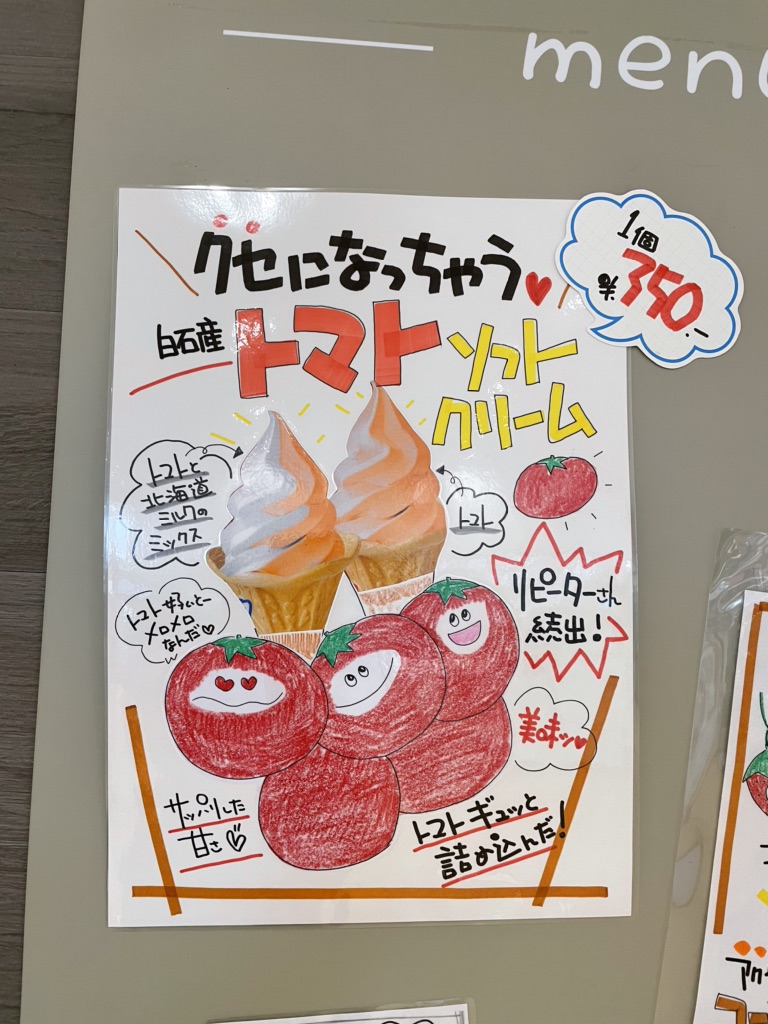 menu
クセになっちゃう
1個
¥350.-
白石産
トマト
ソフト
クリーム
トマトと
北海道
ミルクの
ミックス
トマト
リピーターさん
続出!
トマト好いとー
メロメロ
なんだ♡
美味ッ
サッパリした
甘さ♡
トマトギュッと
詰め込んだ!
アク